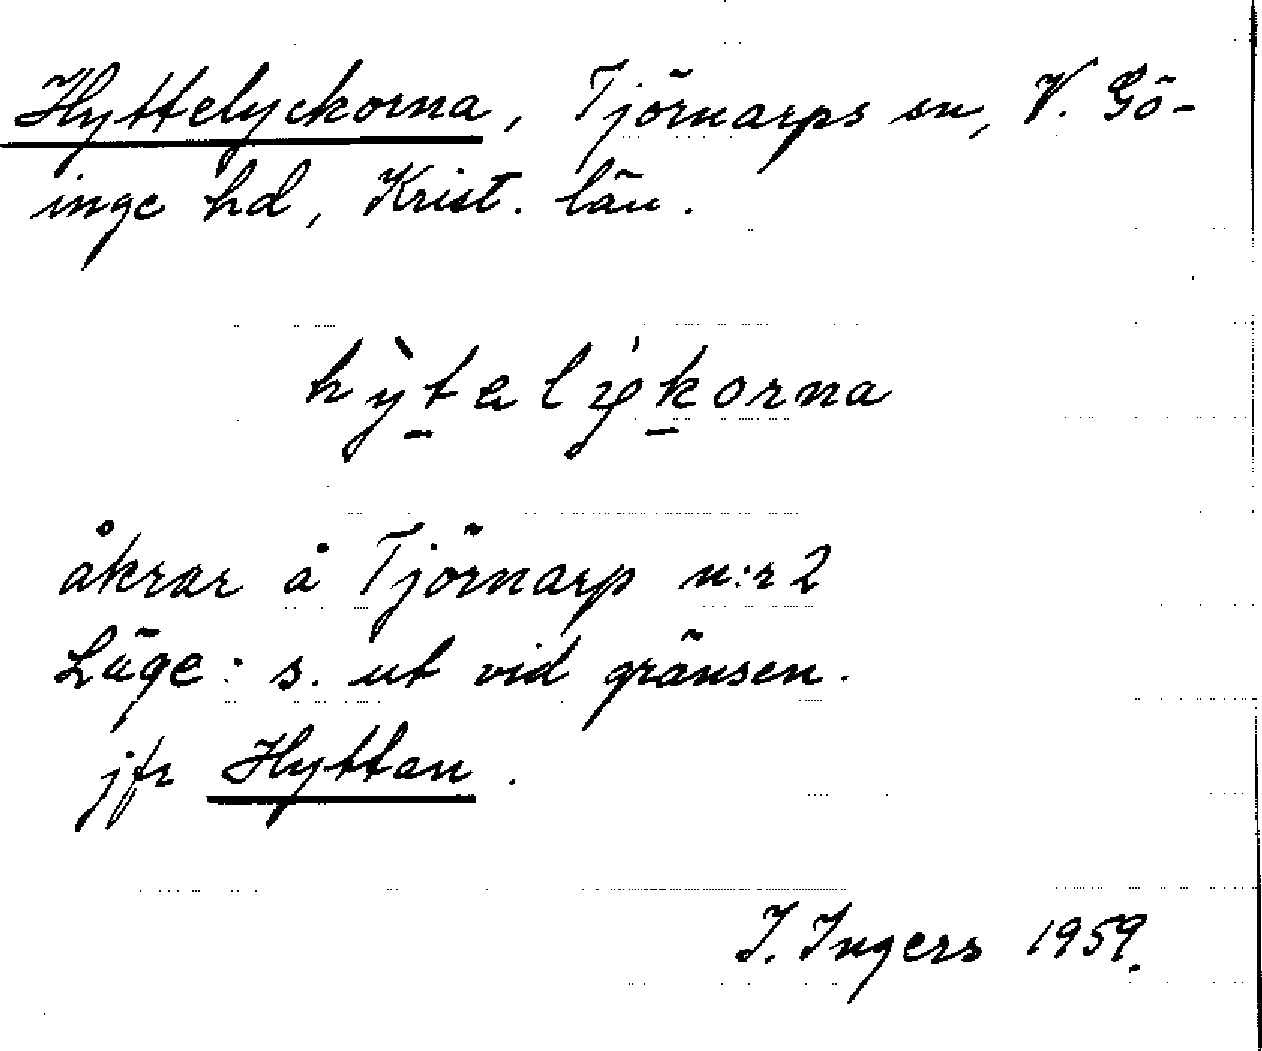 Hyttelyckorna, Tjörnarps sn, V. Gö-
inge hd, Krist. län.
hỳtəlýkorna
åkrar å Tjörnarp n:r 2
Läge: s. ut vid gränsen.
jfr Hyttan.
I. Ingers 1959.